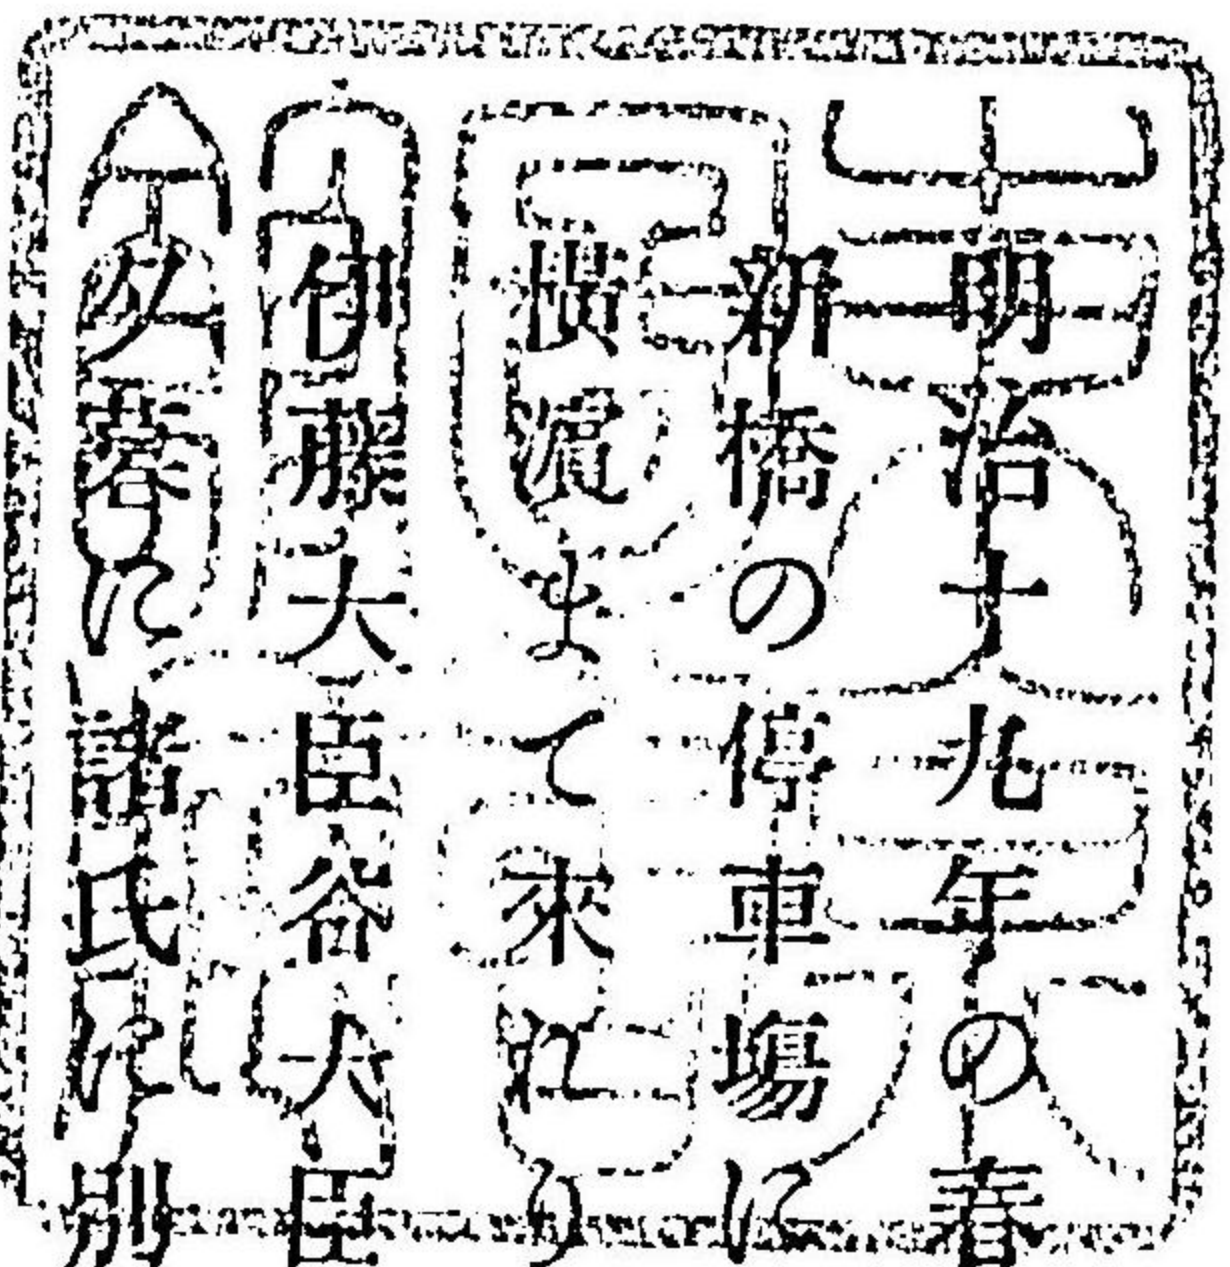 明治十九年の春
新橋の停車塲に
横濱まて來れり
伊藤大臣谷大臣
夕暮に諸氏に別